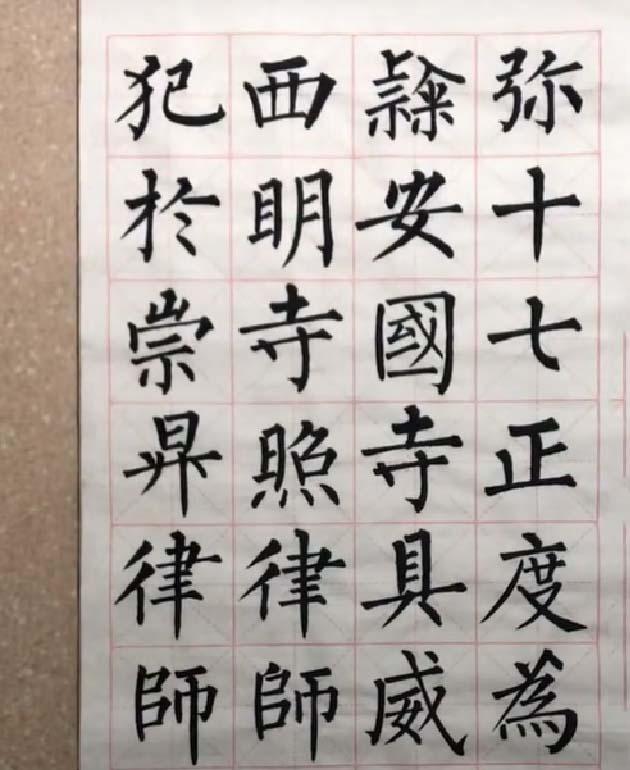 弥十七正度為
隸安國寺具威
西明寺照律師
犯於崇昇律師